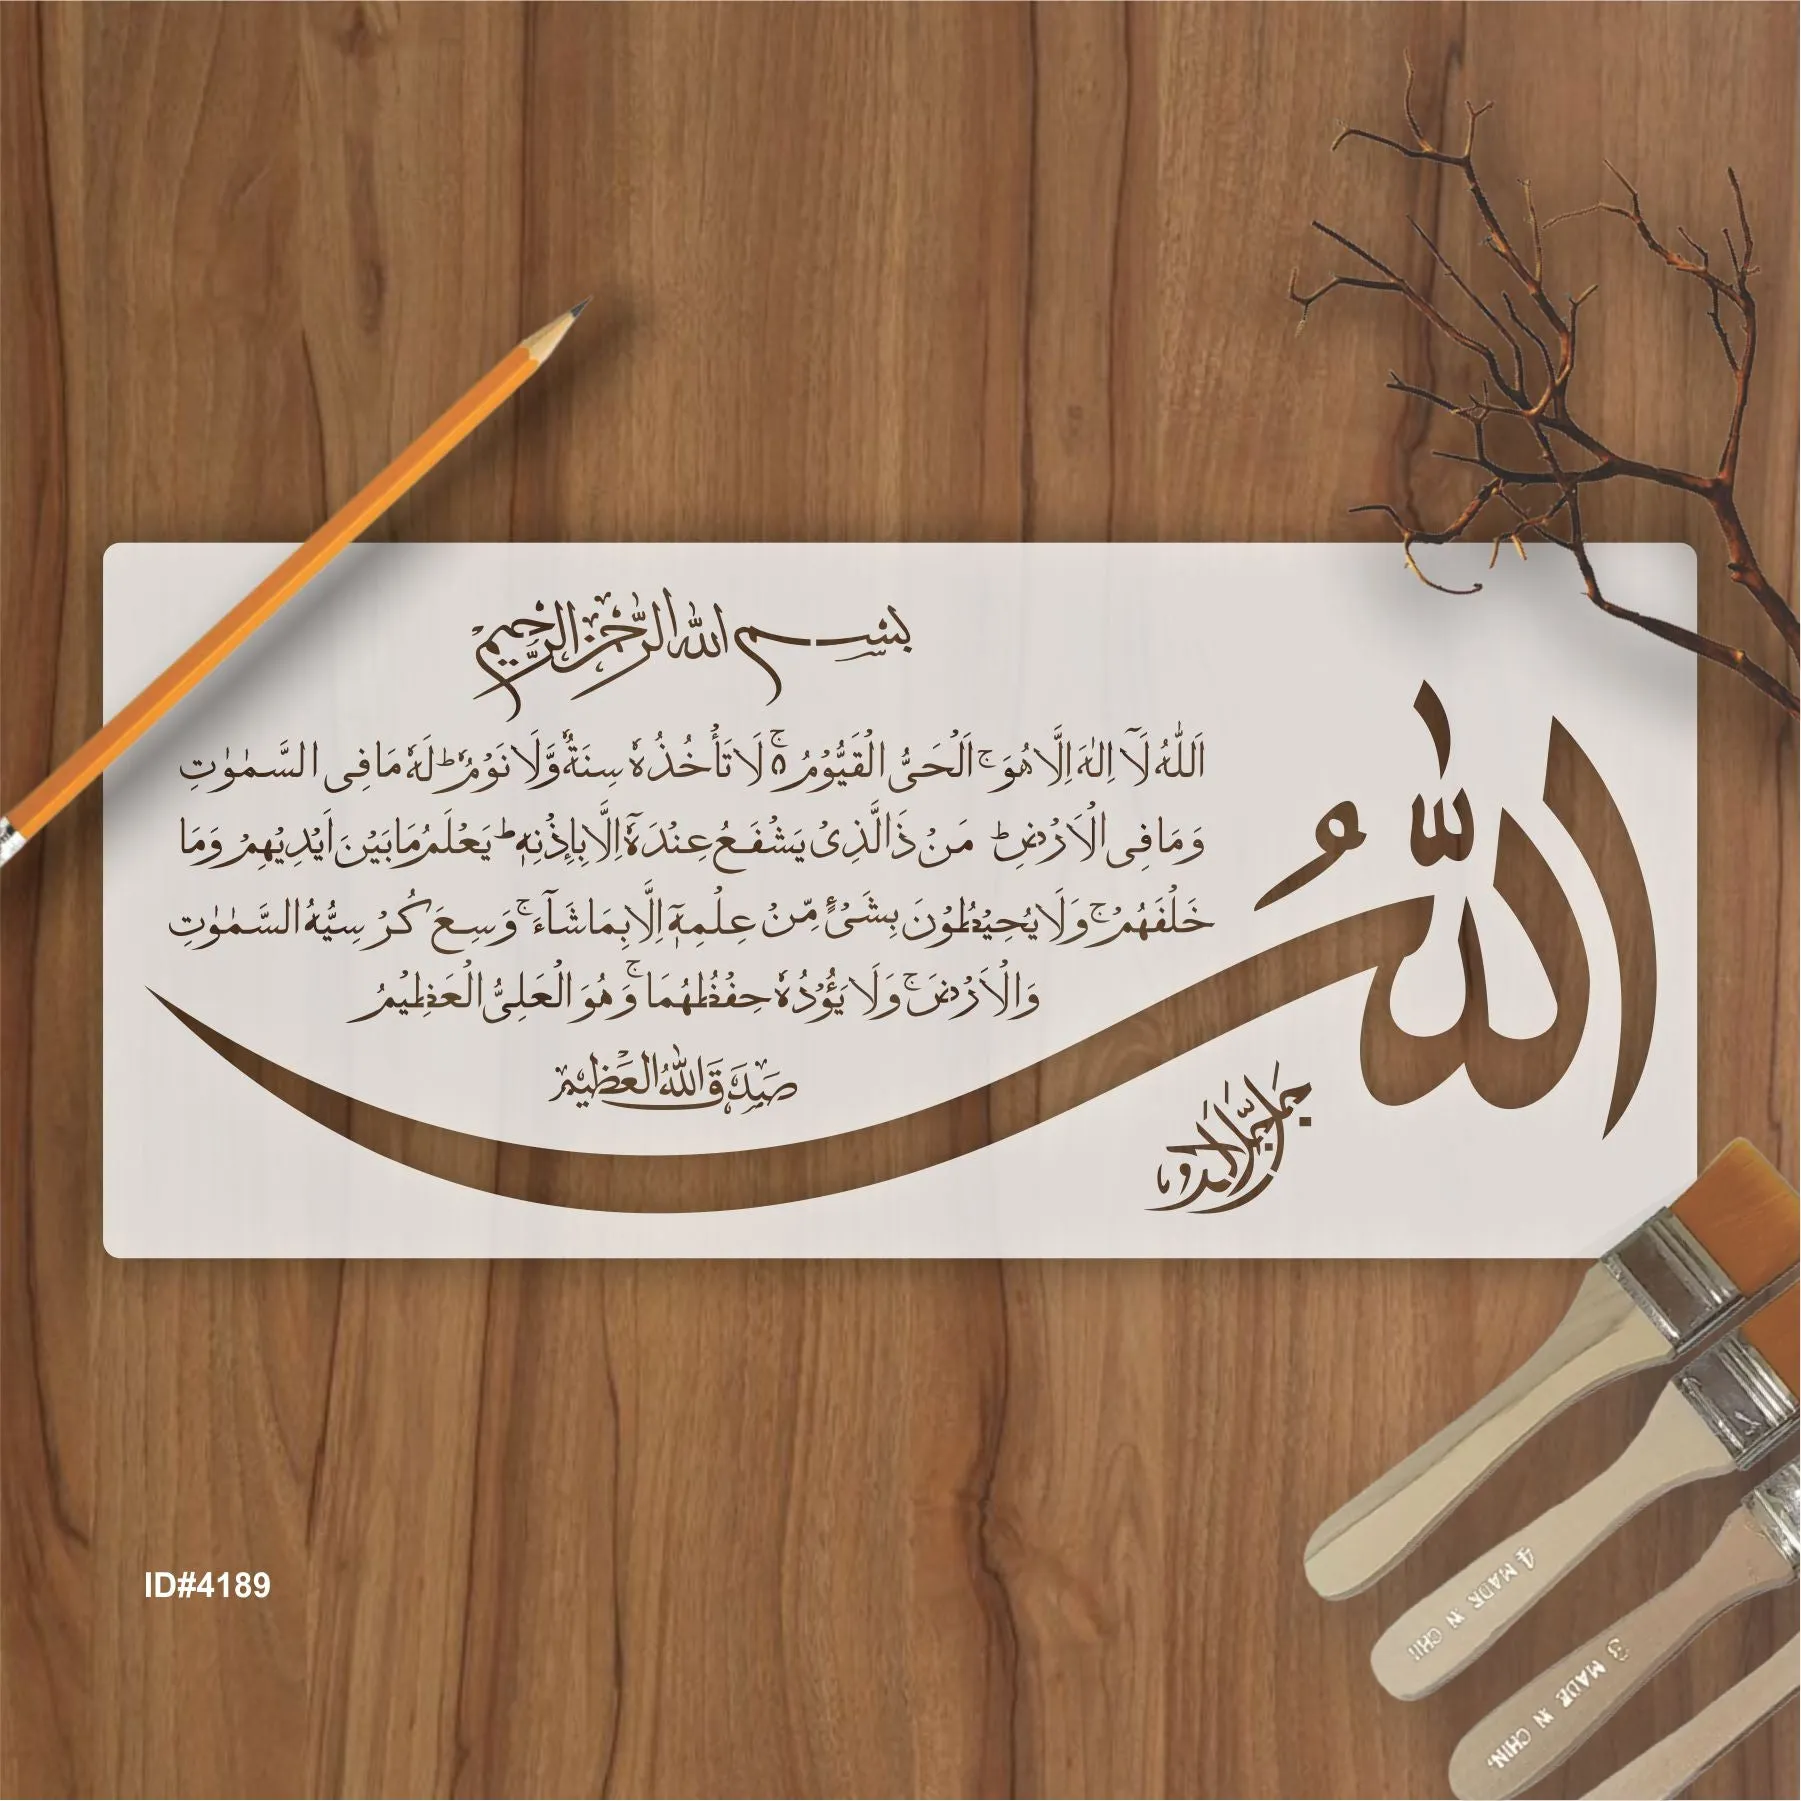 بسم الله الرحمن الرحيم
اَللّٰهُ لَآ اِلٰهَ اِلَّا هُوَ ۚ اَلْحَىُّ الْقَيُّوْمُ ۚ٥ لَا تَأْخُذُهٗ سِنَةٌ وَّلَا نَوْمٌ ؕ لَهٗ مَا فِى السَّمٰوٰتِ
وَمَا فِى الْاَرْضِ ؕ مَنْ ذَا الَّذِىْ يَشْفَعُ عِنْدَهٗٓ اِلَّا بِاِذْنِهٖ ؕ يَعْلَمُ مَا بَيْنَ اَيْدِيْهِمْ وَمَا
خَلْفَهُمْ ۚ وَلَا يُحِيْطُوْنَ بِشَىْءٍ مِّنْ عِلْمِهٖٓ اِلَّا بِمَا شَآءَ ۚ وَسِعَ كُرْسِيُّهُ السَّمٰوٰتِ
وَالْاَرْضَ ۚ وَلَا يَؤُدُهٗ حِفْظُهُمَا ۚ وَهُوَ الْعَلِىُّ الْعَظِيْمُ
صَدَقَ اللهُ الْعَظِيْم
اللّٰهُ
ID#4189
4 MADE IN CHI
3 MADE IN CHIN